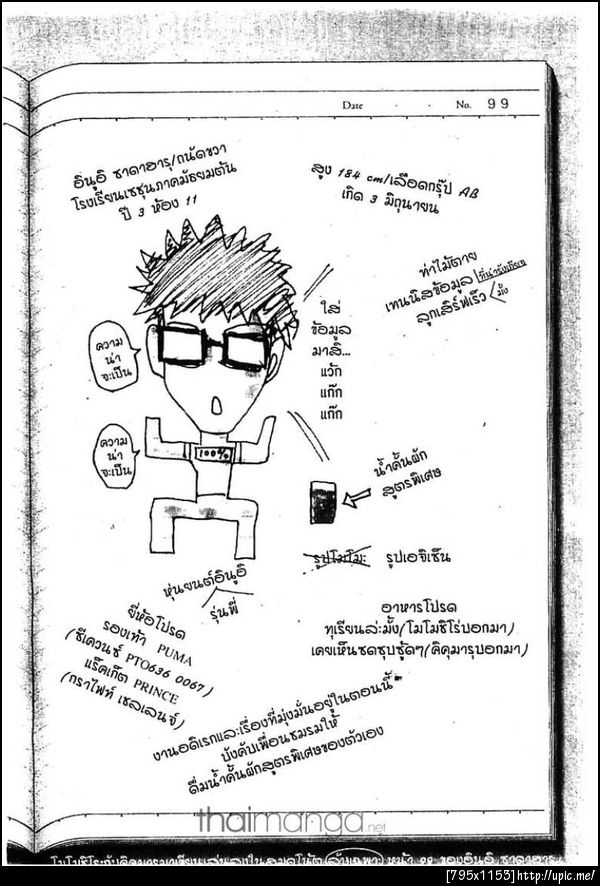 Date . . No. 99
อินูอิ ซาดาฮารุ/ถนัดขวา
โรงเรียนเซชุนภาคมัธยมต้น
ปี 3 ห้อง 11
สูง 184 cm/เลือดกรุ๊ป AB
เกิด 3 มิถุนายน
ท่าไม้ตาย
เทนนิสข้อมูล ที่น่ารังเกียจ
ลูกเสิร์ฟเร็ว มั้ง
ใส่
ข้อมูล
มาสิ...
แว้ก
แก๊ก
แก๊ก
ความ
น่า
จะเป็น
ความ
น่า
จะเป็น
100%
น้ำคั้นผัก
สูตรพิเศษ
รูปโมโมะ รูปเอจิเซ็น
หุ่นยนต์อินูอิ
รุ่นพี่
ยี่ห้อโปรด
รองเท้า PUMA
(ซีเควนซ์ PTO636 0067)
แร็คเก็ต PRINCE
(กราไฟท์ เชลเลนจ์)
อาหารโปรด
ทุเรียนล่ะมั้ง(โมโมชิโร่บอกมา)
เคยเห็นซดซุปซู้ดๆ(คิคุมารุบอกมา)
งานอดิเรกและเรื่องที่มุ่งมั่นอยู่ในตอนนี้
บังคับเพื่อนชมรมให้
ดื่มน้ำคั้นผักสูตรพิเศษของตัวเอง
thaimanga.net
[795x1153]http://upic.me/